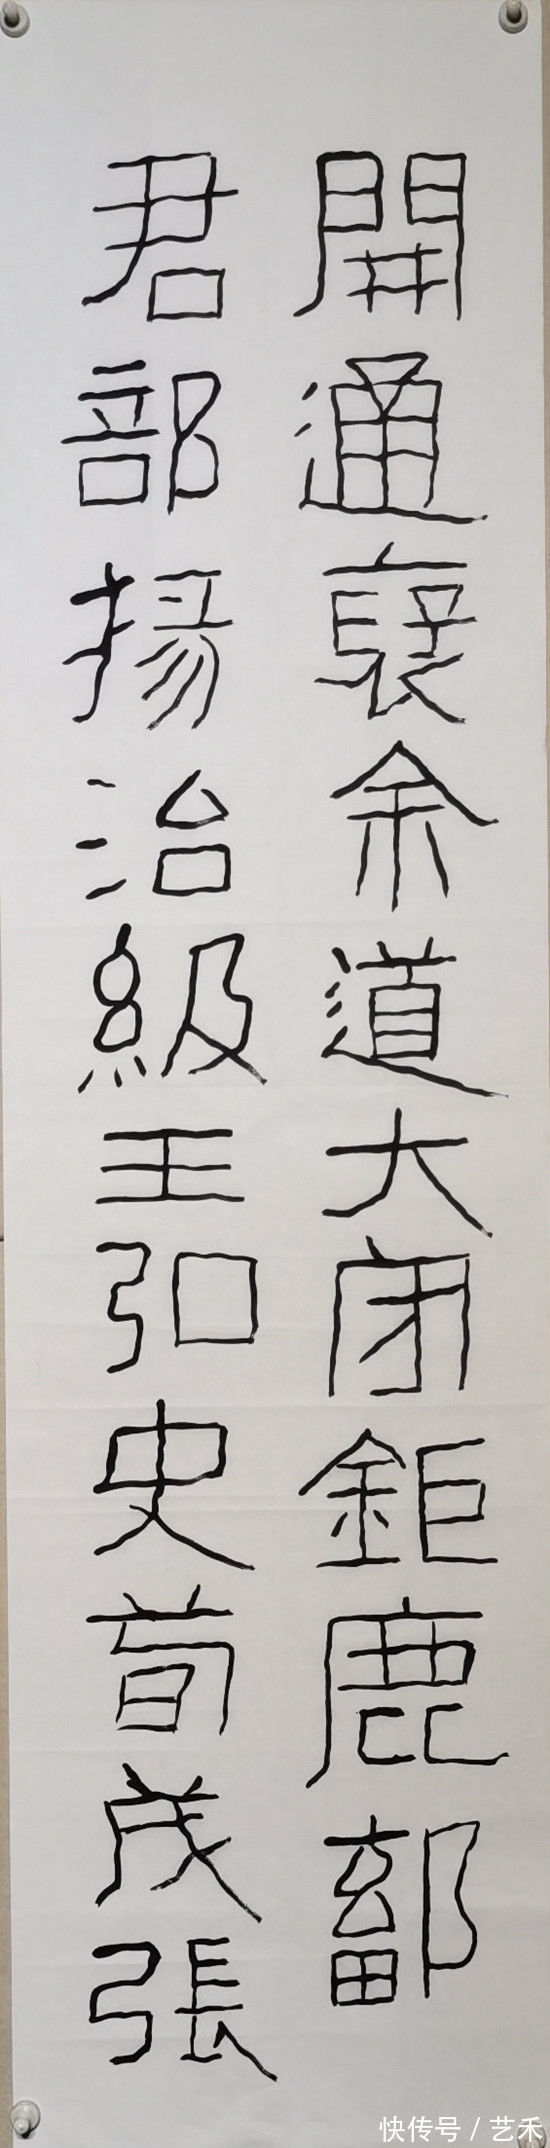 開通褒余道大守鉅鹿鄐
君部掾治級王弘史荀茂張
快传号 / 艺禾